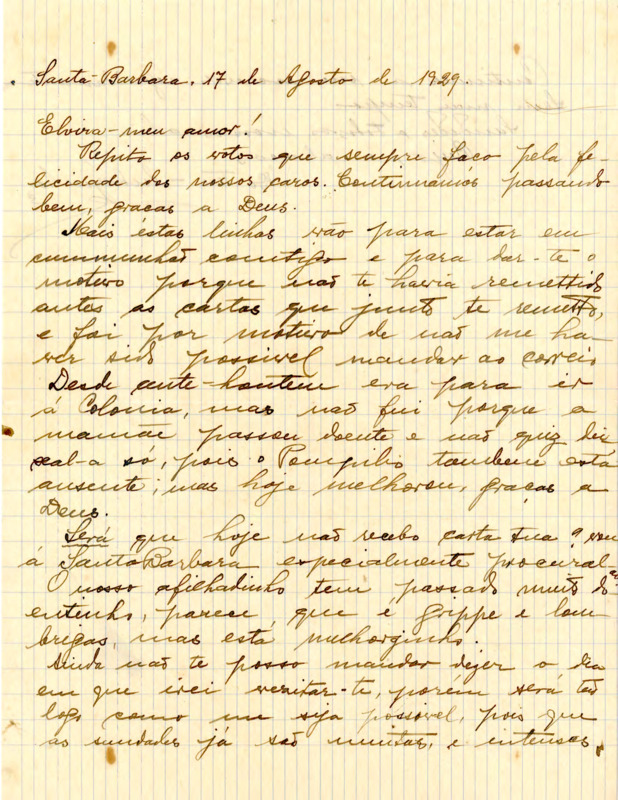 Santa-Barbara, 17 de Agosto de 1929.
Elvira-meu amor!
Repito os votos que sempre faço pela fe-
licidade dos nossos caros. Continuamos passando
bem, graças a Deus.
Mais éstas linhas irão para estar em
communhão comtigo e para dar-te o
motivo porque não te havia remettido
antes as cartas que junto te remetto,
e foi por motivo de não me ha-
ver sido possivel mandar ao correio
Desde ante-hontem era para ir
á Colonia, mas não fui porque a
mamãe passou doente e não quiz dei
xal-a só, pois o Pompilio tambem está
ausente; mas hoje melhorou, graças a
Deus.
Será que hoje não recebo carta tua? vou
á Santa Barbara especialmente procural-as
O nosso afilhadinho tem passado muito do
entinho, parece que é grippe e lom
brigas, mas está melhorzinho.
Ainda não te posso mandar dizer o dia
em que irei vezitar-te, porém será tão
logo como me seja possivel, pois que
as saudades já são muitas, e intensas,